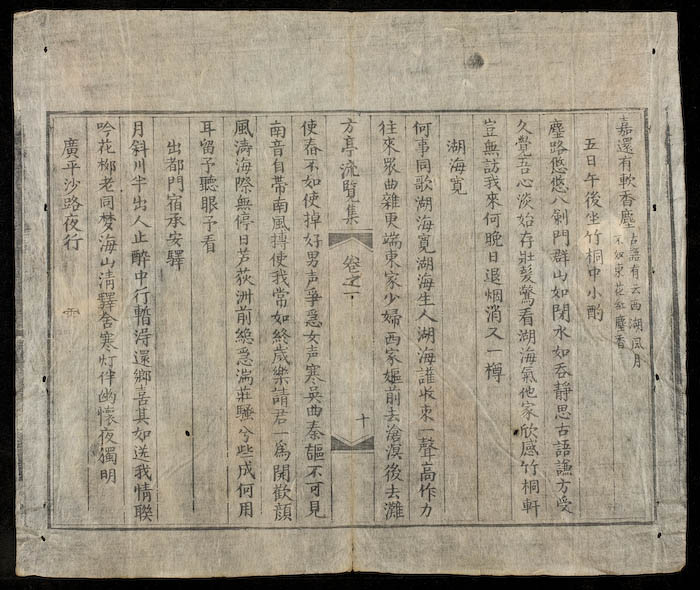 嘉還有軟香塵古語有云西湖風月
不如東花軟塵香
五日午後坐竹桐中小酌
塵路悠悠八剝門群山如閉水如吞靜思古語謙方受
久覺吾心淡始存壯髮驚看湖海氣他家欣感竹桐軒
豈無訪我來何晚日退烟消又一樽
湖海寬
何事同歌湖海寬湖海生人湖海誰收束一聲高作力
往來眾曲雜更端東家少婦西家嫗前去滄溟後去灘
方亭流覽集 卷之一 十
使春不如使掉好男声爭急女声寒吳曲秦謳不可見
南音自帶南風摶使我常如終歲樂請君一為開歡顔
風濤海際無停日芦荻洲前總急湍莊騷兮些成何用
耳留予聽眼予看
出都門宿承安驛
月斜川半出人止醉中行暫淂還鄉喜其如送我情聯
吟花榔老同梦海山清驛舍寒灯伴幽懷夜獨明
廣平沙路夜行